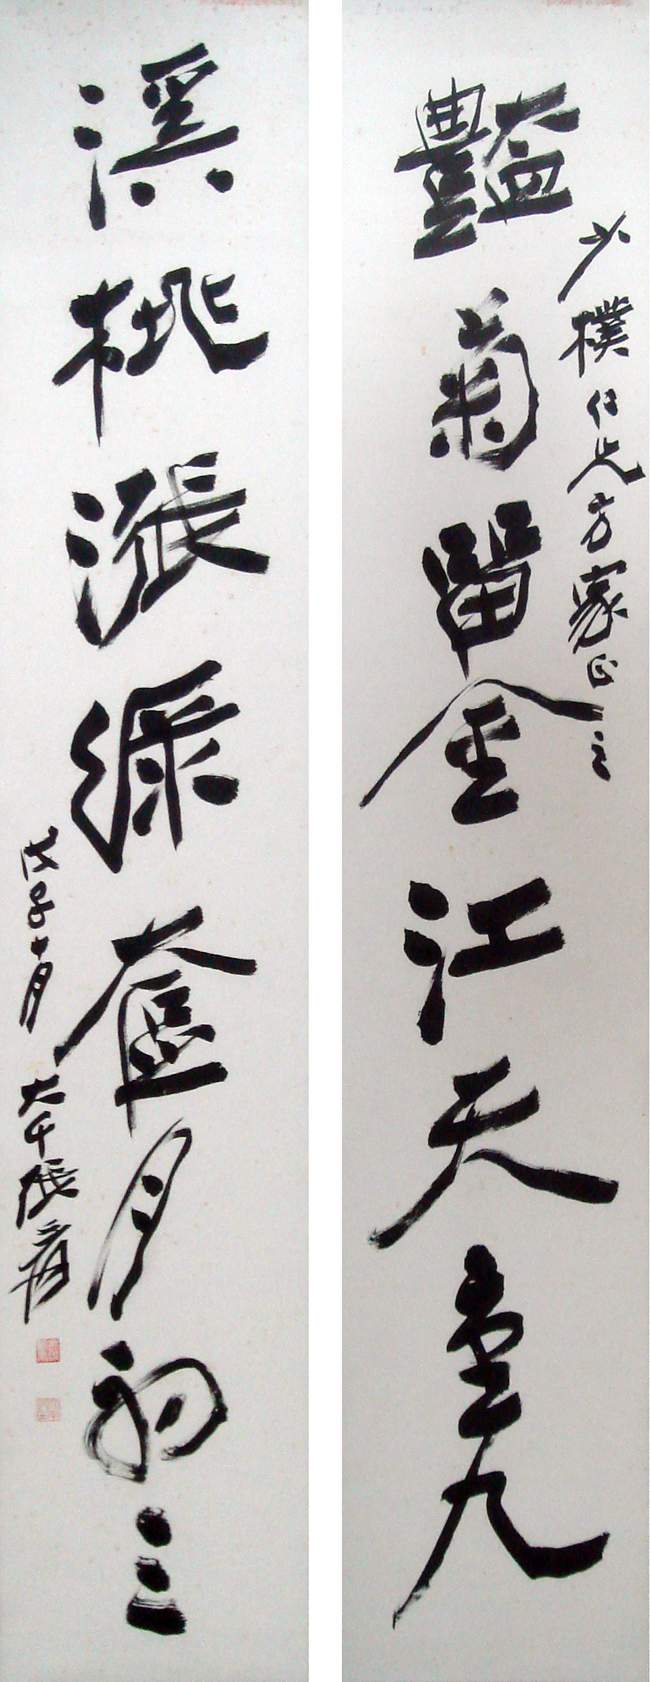 少樸仁兄方家正之
豔菊留金江天重九
溪桃漲綠奩月初三
戊子十月 大千張爰